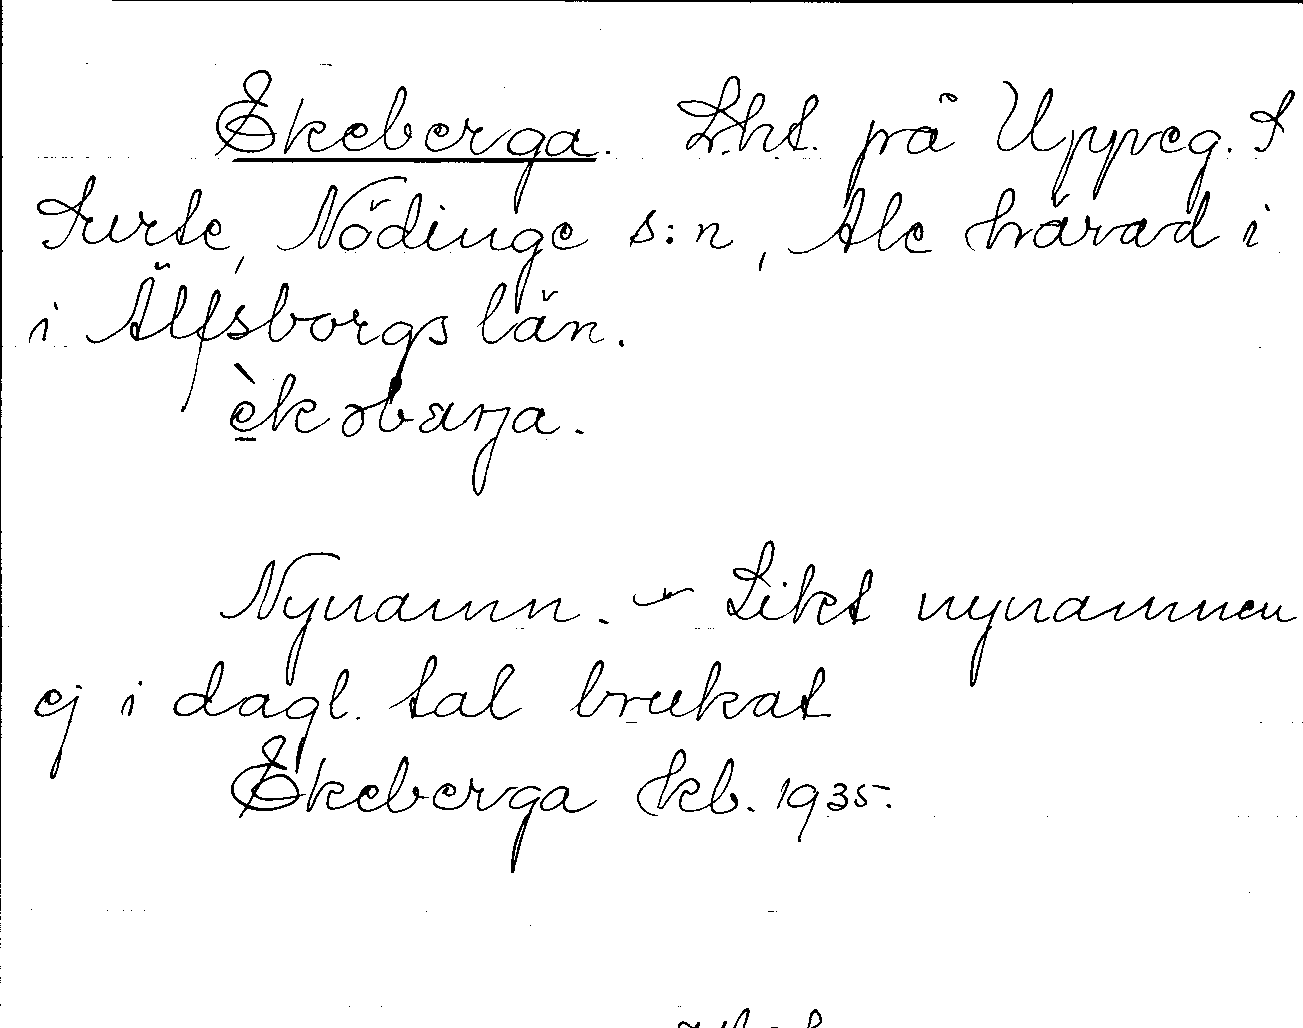 Ekeberga. Lht. på Uppveg. I
Surte, Nödinge s:n, Ale härad i
i Älfsborgs län.
èkəbærja.
Nynamn. – Likt nynamnen
ej i dagl. tal brukat
Ekeberga kb. 1935.